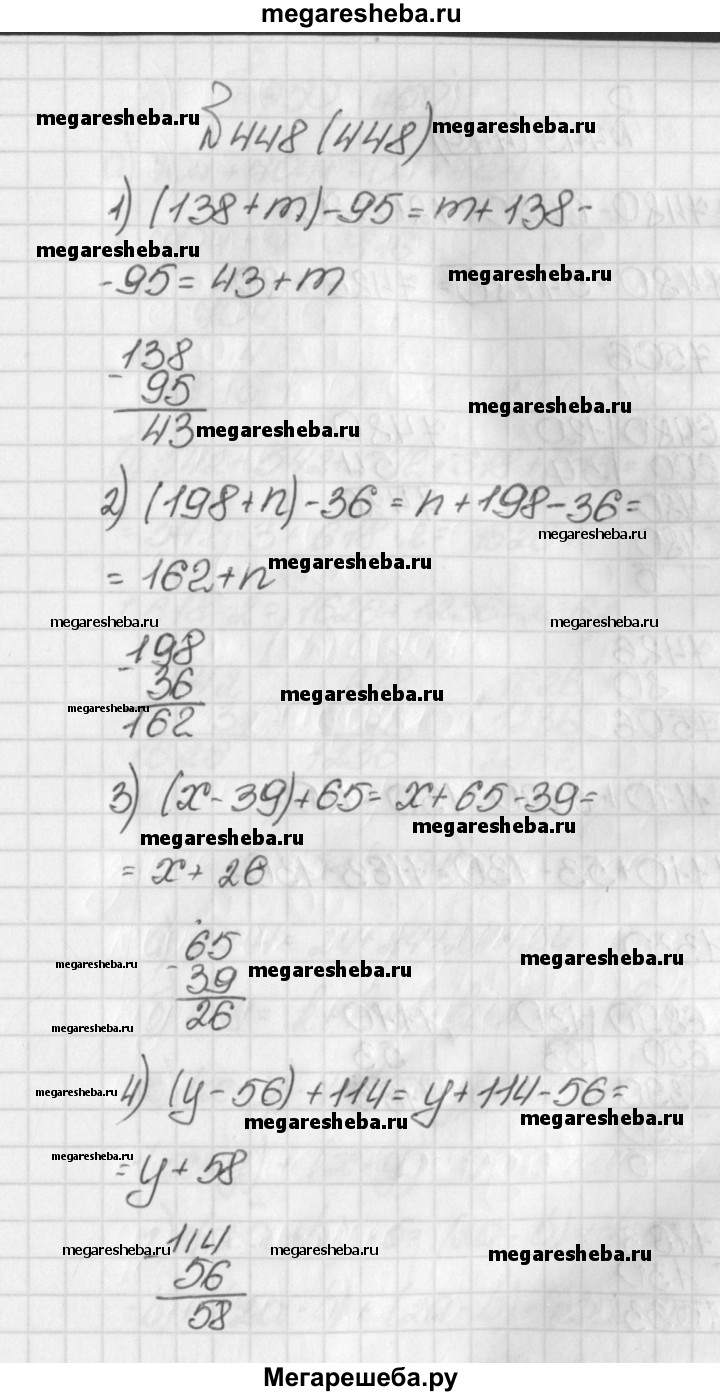 megaresheba.ru
megaresheba.ru
№448 (448)
megaresheba.ru
1) (138+m)-95=m+138-
megaresheba.ru
-95=43+m
megaresheba.ru
-138
95
megaresheba.ru
43
megaresheba.ru
2) (198+n)-36=n+198-36=
megaresheba.ru
=162+n
megaresheba.ru
megaresheba.ru
megaresheba.ru
-198
36
megaresheba.ru
megaresheba.ru
162
3) (x-39)+65=x+65-39=
megaresheba.ru
megaresheba.ru
=x+26
-65
megaresheba.ru
megaresheba.ru
39
megaresheba.ru
26
megaresheba.ru
megaresheba.ru
4) (y-56)+114=y+114-56=
megaresheba.ru
megaresheba.ru
megaresheba.ru
=y+58
-114
megaresheba.ru
megaresheba.ru
megaresheba.ru
56
58
Мегарешеба.ру